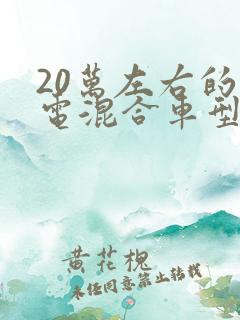 20萬左右的
電混合車型
黄花槐
未经同意禁止转载